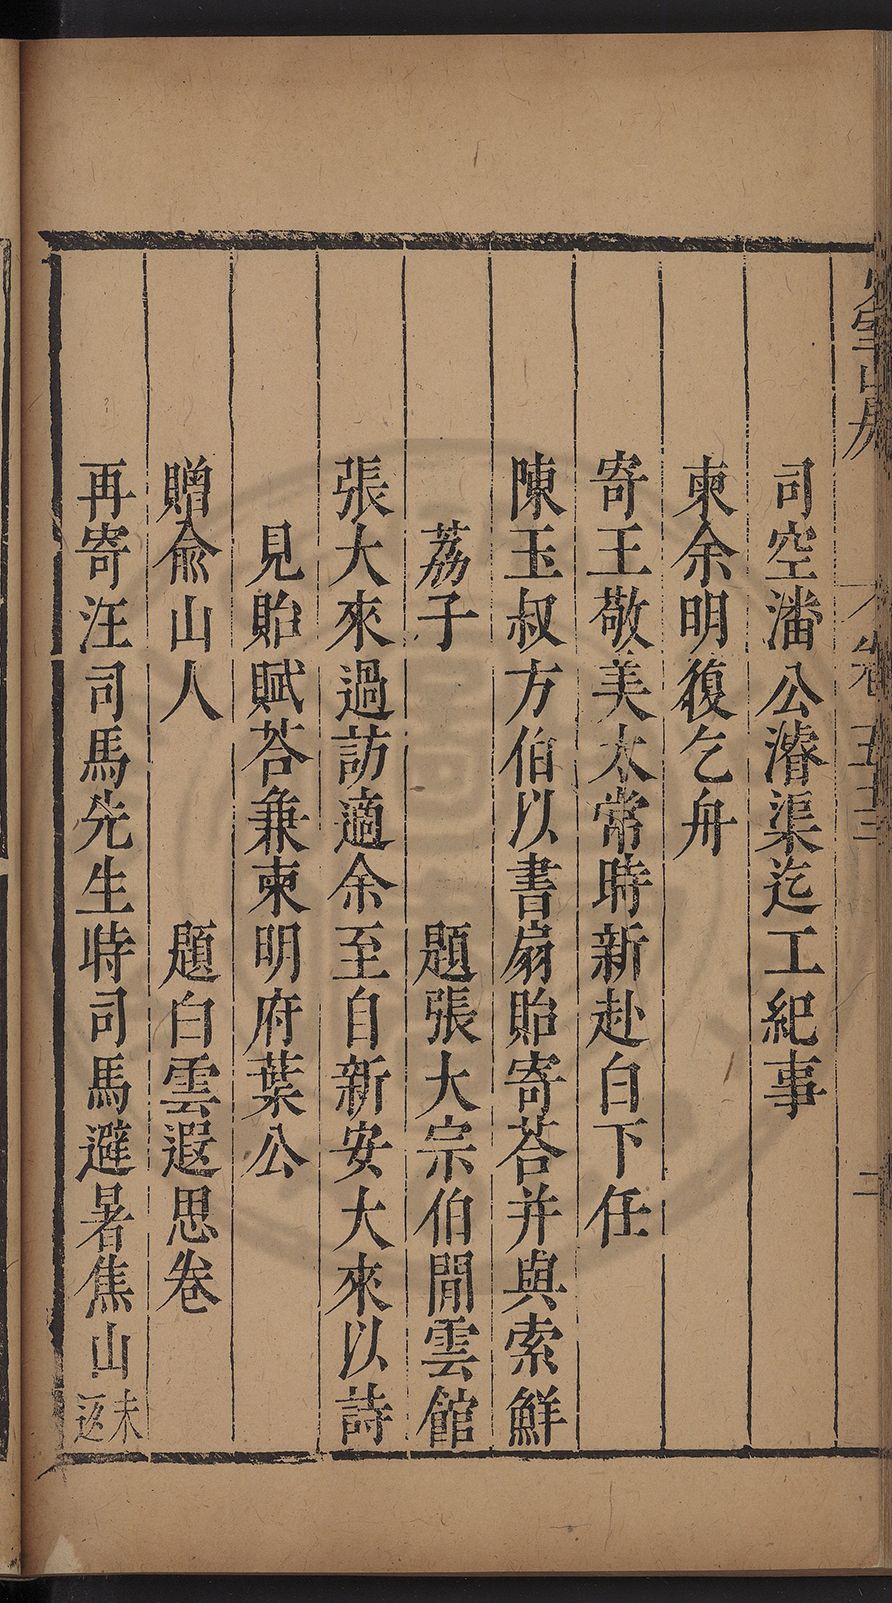 司空潘公濬渠迄工紀事
柬余明復乞舟
寄王敬美太常時新赴白下任
陳玉叔方伯以書扇貽寄荅并與索鮮
荔子　題張大宗伯閒雲館
張大來過訪適余至自新安大來以詩
見貽賦荅兼柬明府葉公
贈俞山人　題白雲遐思卷
再寄汪司馬先生時司馬避暑焦山未返
山房
卷五十三
二